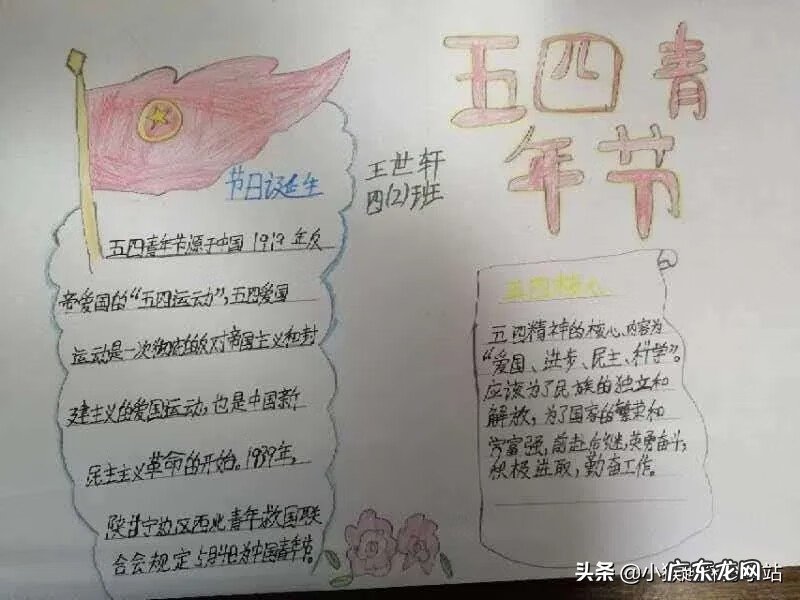 五四青
年节
王世轩
四(2)班
节日诞生
五四青年节源于中国1919年反
帝爱国的“五四运动”,五四爱国
运动是一次彻底的反对帝国主义和封
建主义的爱国运动,也是中国新
民主主义革命的开始。1939年,
陕甘宁边区西北青年救国联
合会规定5月4日为中国青年节。
五四核心
五四精神的核心内容为
“爱国、进步、民主、科学”。
应该为了民族的独立和
解放,为了国家的繁荣和
富强,前赴后继,英勇奋斗,
积极进取,勤奋工作。
头条@小
广东龙网
站